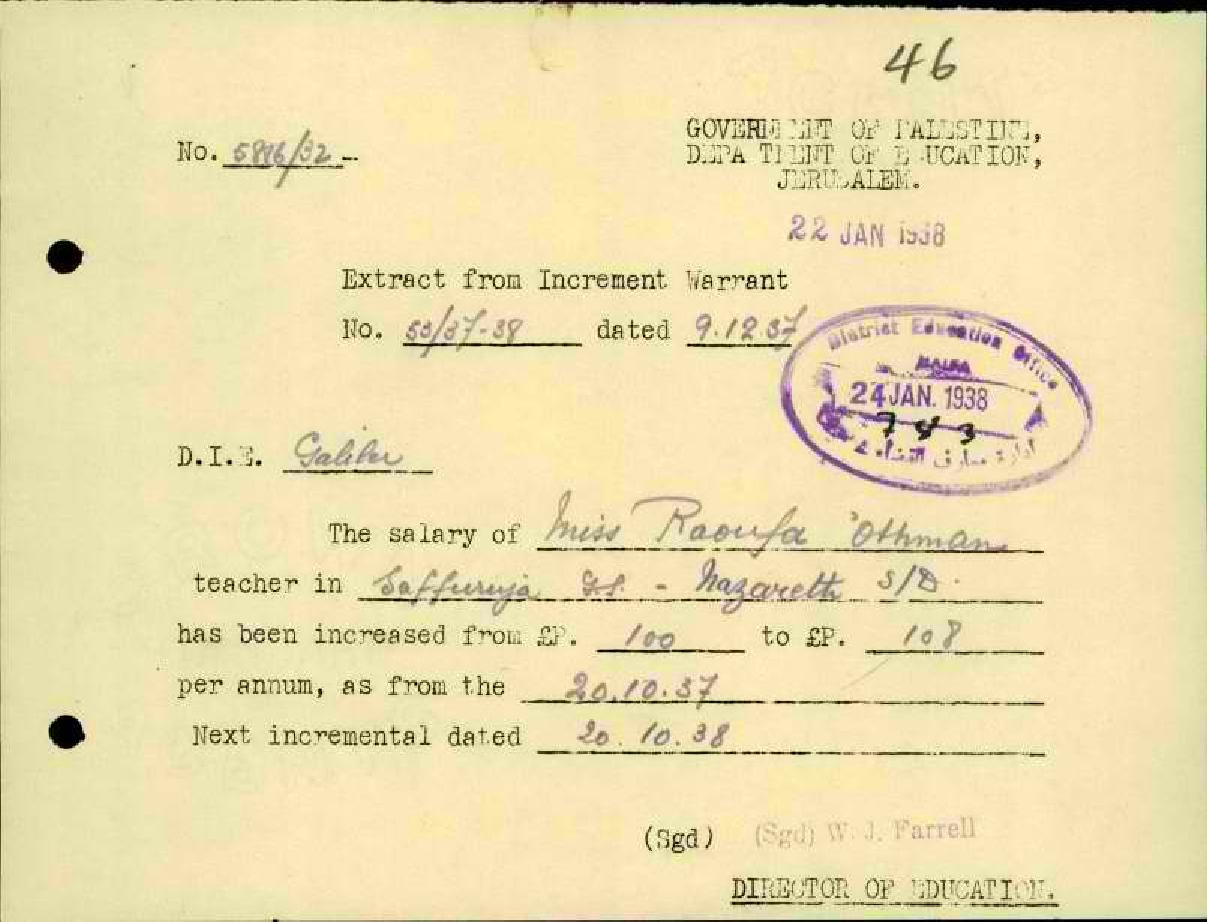 46
No. 5816/32 -
GOVERNMENT OF PALESTINE,
DEPARTMENT OF EDUCATION,
JERUSALEM.
22 JAN 1938
Extract from Increment Warrant
No. 53/37-38 dated 9.12.37
District Education Office
HAIFA
24 JAN. 1938
743
ادارة معارف القضاء
D.I.E. Galilee
The salary of Miss Raoufa 'Othman
teacher in Saffuriya G.S. - Nazareth S/D.
has been increased from £P. 100 to £P. 108
per annum, as from the 20.10.37
Next incremental dated 20.10.38
(Sgd) (Sgd) W. J. Farrell
DIRECTOR OF EDUCATION.